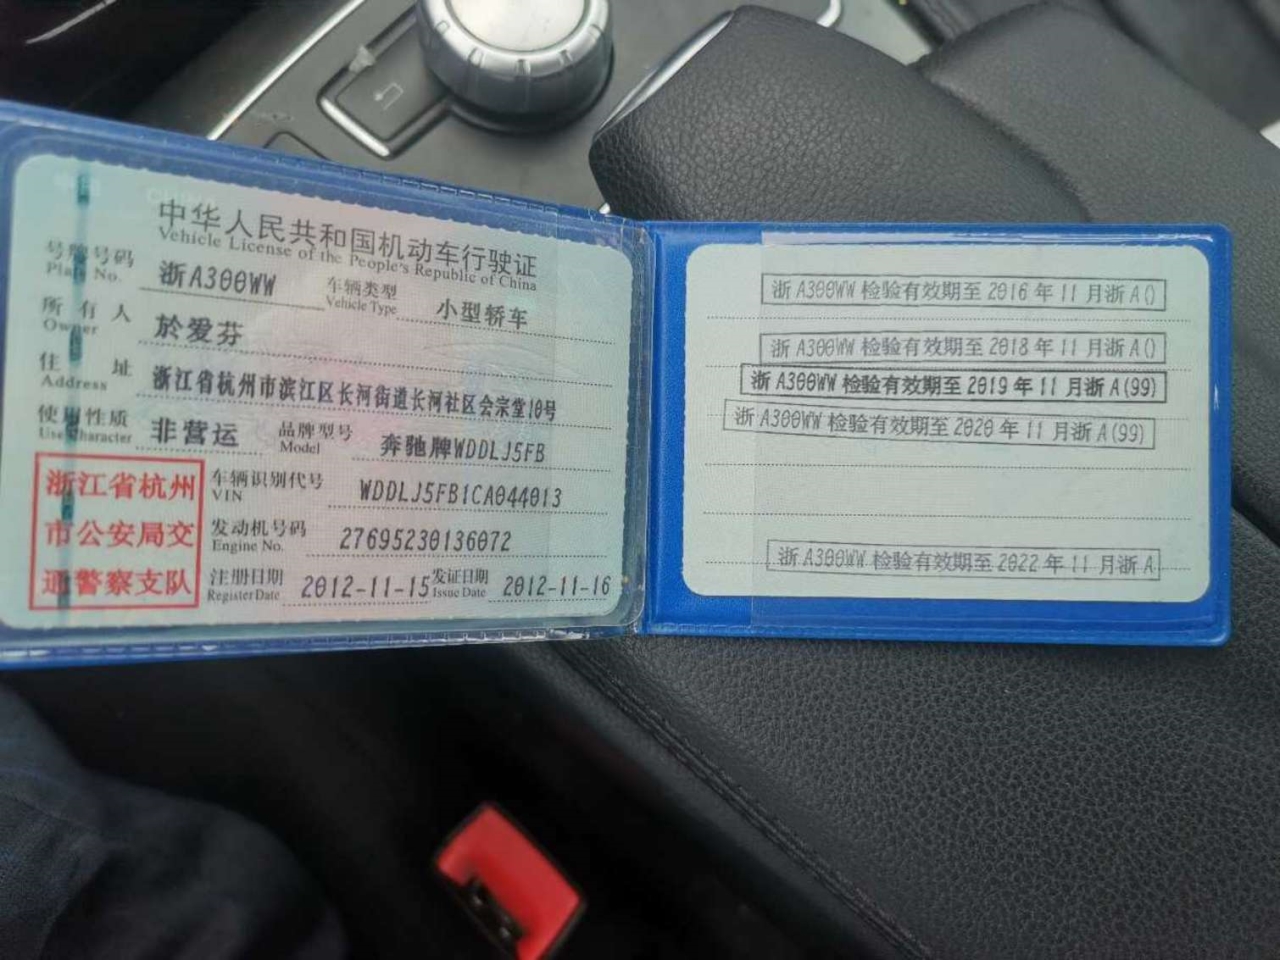 中华人民共和国机动车行驶证
Vehicle License of the People's Republic of China
号牌号码 浙A300WW 车辆类型 小型轿车
Plate No. Vehicle Type
所有人 於爱芬
Owner
住址 浙江省杭州市滨江区长河街道长河社区会宗堂10号
Address
使用性质 非营运 品牌型号 奔驰牌WDDLJ5FB
Use Character Model
浙江省杭州
市公安局交
通警察支队
车辆识别代号 WDDLJ5FB1CA044013
VIN
发动机号码 27695230136072
Engine No.
注册日期 2012-11-15 发证日期 2012-11-16
Register Date Issue Date
浙A300WW 检验有效期至 2016 年 11 月浙A()
浙A300WW 检验有效期至 2018 年 11 月浙A()
浙A300WW 检验有效期至 2019 年 11 月浙A(99)
浙A300WW 检验有效期至 2020 年 11 月浙A(99)
浙A300WW 检验有效期至 2022 年 11 月浙A